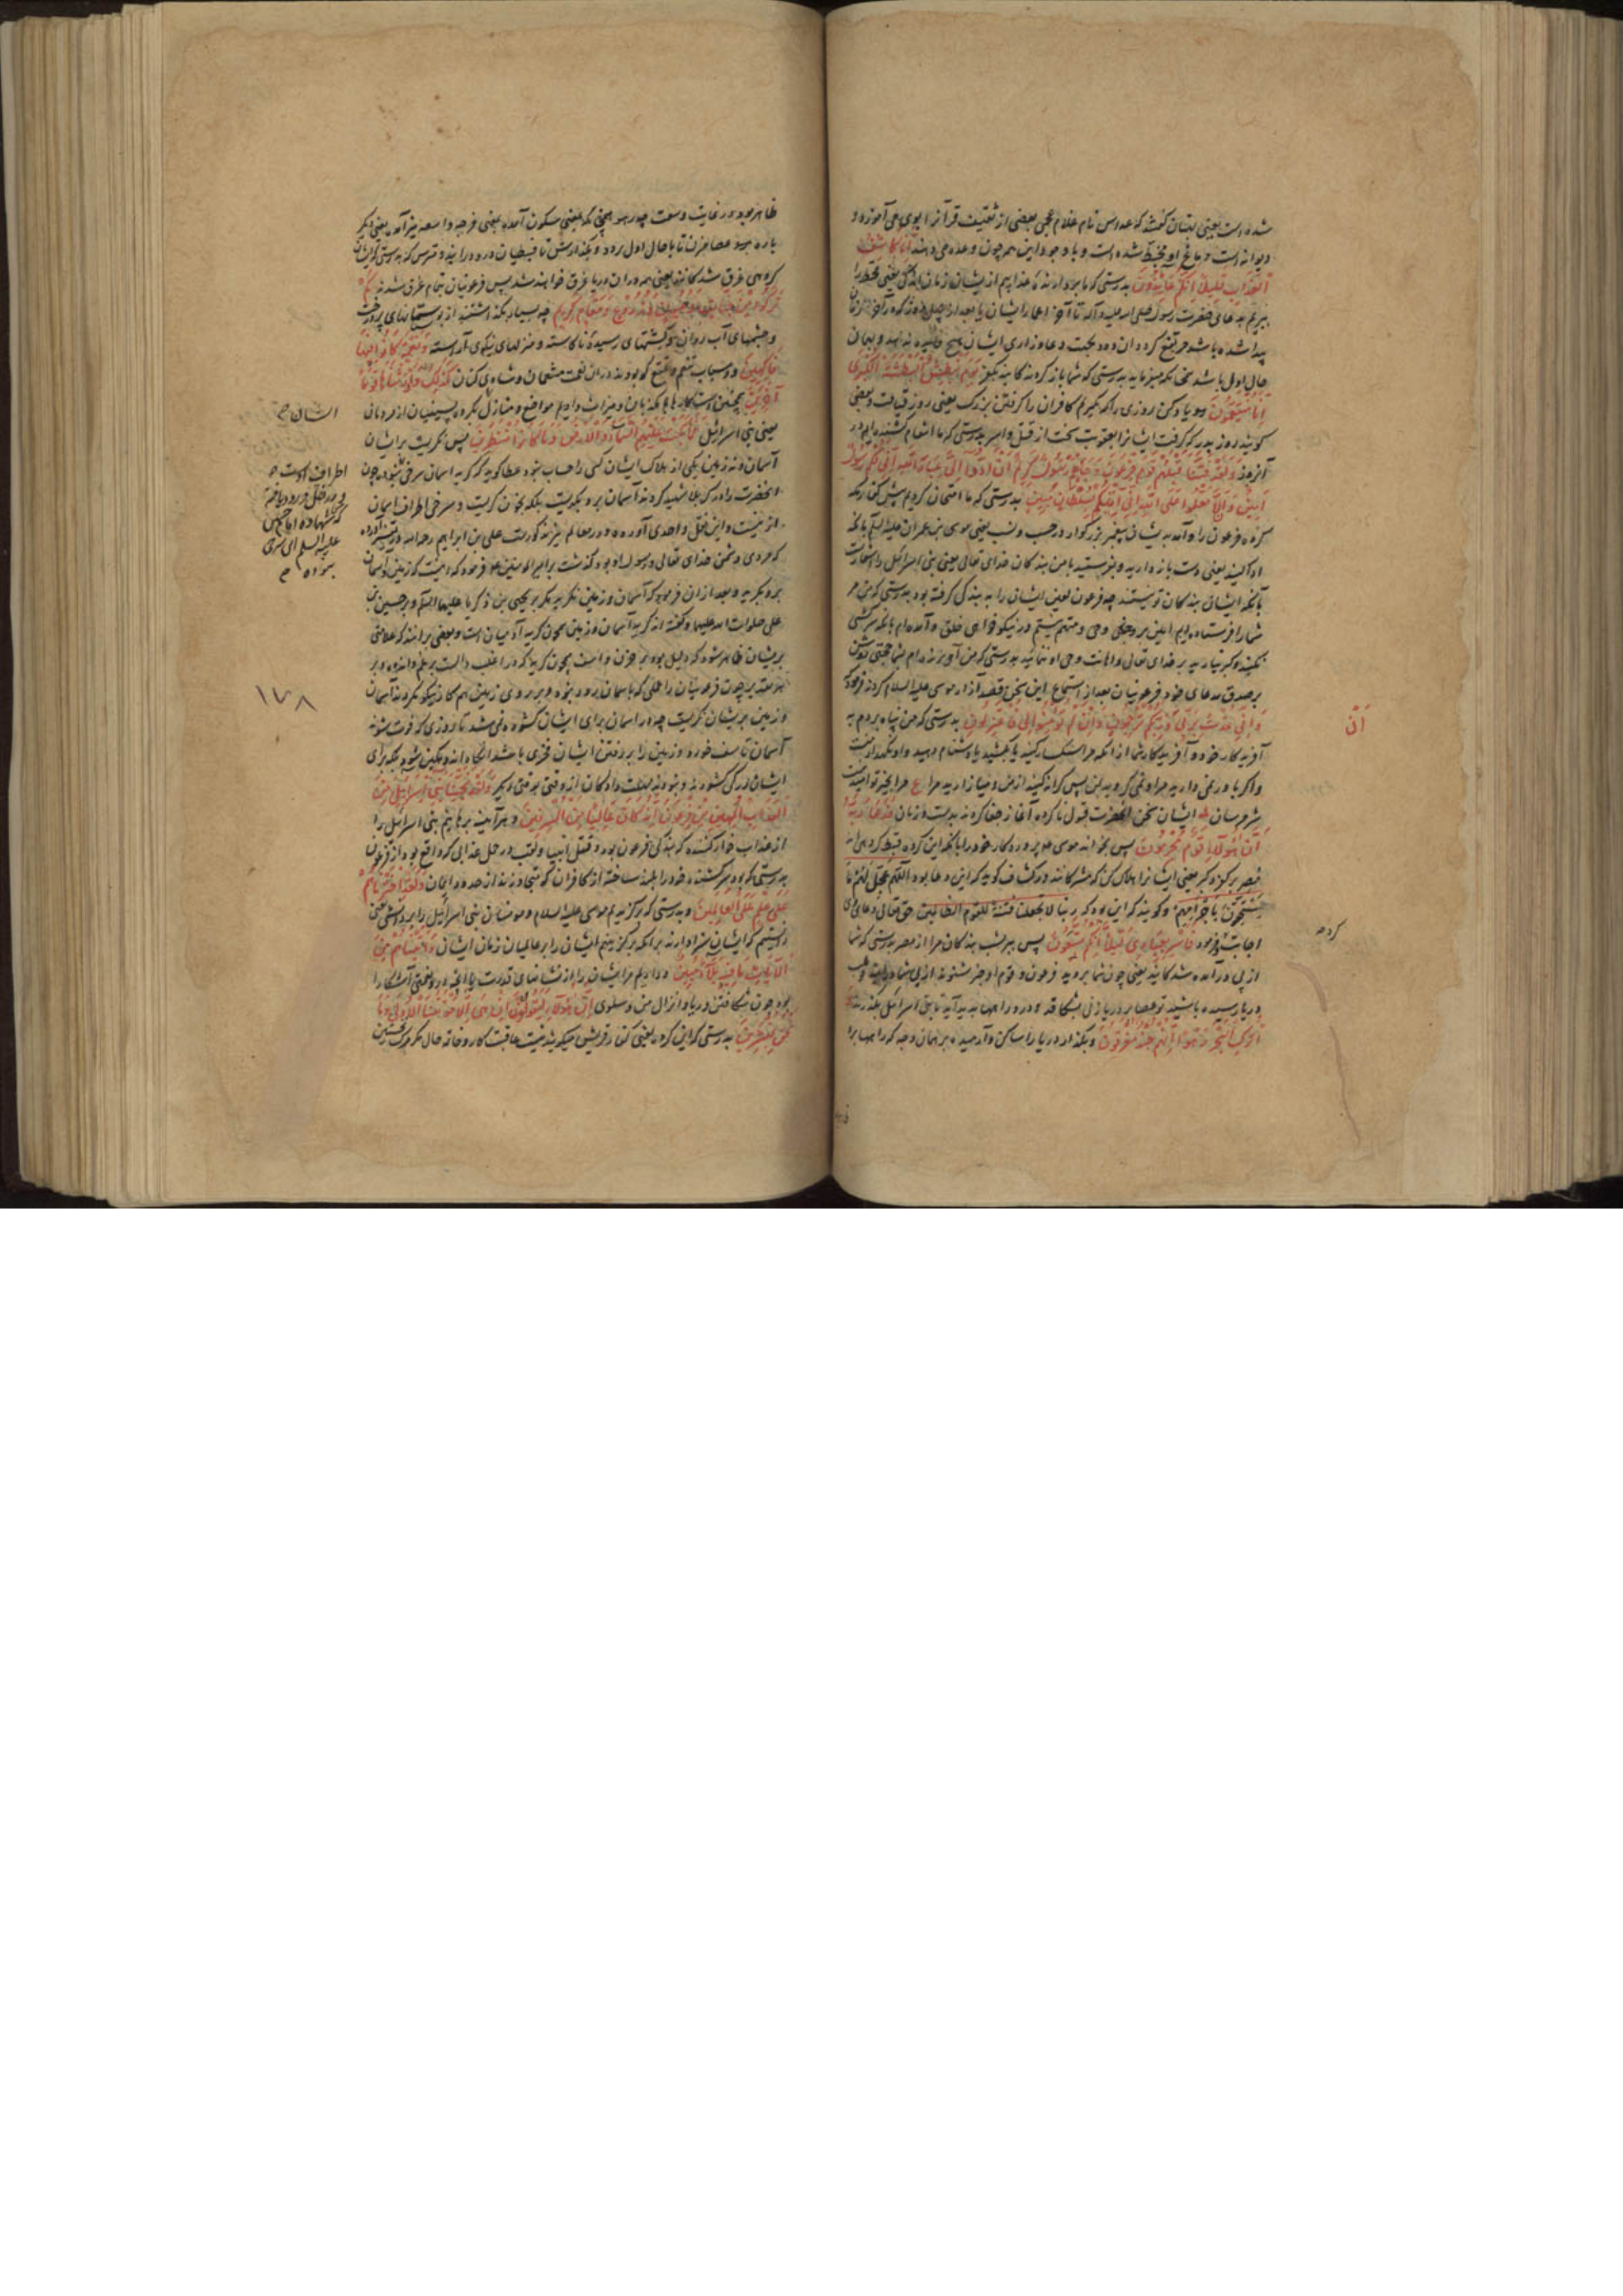 شده است یعنی بهتان گفتند که عداس نام غلام عجمی بعضی از ثقیف قرآنرا بوی می آموزد و
دیوانه است دماغ او مخبط شده است و با وجود این همه چون وعده می دهند انا کاشفوا
العذاب قلیلا انکم عائدون بدرستی که ما بردارنده عذابیم از ایشان زمان اندکی یعنی قحط را
ببریم بدعای حضرت رسول صلی الله علیه وآله تا آخر اعمار ایشان یا بعد از چهل روز که در آخر زمان
پیدا شده باشد مرتفع گردد ان دود بجهت دعا و زاری ایشان هیچ فایده ندهد و بهمان
حال اول باشد چنانکه میفرماید بدرستی که شما بازگردندگانید بکفر یوم نبطش البطشة الکبری
انا منتقمون و یاد کن روزی را که بگیریم کافران را گرفتن بزرگ یعنی روز قیامت و بعضی
گویند روز بدر که گرفت ایشانرا بعقوبت سخت از قتل و اسر بدرستی که ما انتقام کشنده ایم در
آنروز ولقد فتنا قبلهم قوم فرعون وجاءهم رسول کریم ان ادوا الی عباد الله انی لکم رسول
امین وان لا تعلوا علی الله انی اتیکم بسلطان مبین بدرستی که ما امتحان کردیم پیش از کفار مکه
گروه فرعون را و آمد بدیشان پیغمبر بزرگوار در حسب و نسب یعنی موسی بن عمران علیه السلام بانکه
ادا کنید یعنی دست بازدارید و بفرستید با من بندگان خدای تعالی یعنی بنی اسرائیل را
بآنکه ایشان بندگان تو نیستند چه فرعون لعین ایشان را به بندگی گرفته بود بدرستی که من مر
شما را فرستاده ایم امین بر وحی و متهم نیستم در نیکو خواهی خلق و آمده ام بانکه سرکشی
نکنید و کبر نیارید بر خدای تعالی و اهانت وحی او ننمائید بدرستی که من آورنده ام بشما حجتی روشن
بر صدق مدعای خود فرعونیان بعد از استماع این سخن قصد آزار موسی علیه السلام کردند فرمود که
وانی عذت بربی وربکم ان ترجمون وان لم تؤمنوا لی فاعتزلون بدرستی که من پناه بردم به
آفریدگار خود و آفریدگار شما از انکه مرا سنگسار کنید یا بکشید یا دشنام دهید و او نگهدار منست
و اگر باور نمی دارید مرا و نمی گروید بمن پس کرانه کنید از من و میازارید مرا ع مرا بخیر تو امید نیست
شر مرسان ایشان سخن انحضرت قبول ناکرده آغاز جفا کردند بدست و زبان فدعا ربه
ان هؤلاء قوم مجرمون پس بخواند موسی پروردگار خود را بانکه این گروه قبط گروهی اند
مصر بر کفر و کبر یعنی ایشانرا هلاک کن که مشرکانند و در کشاف گوید که این دعا بود اللهم عجل لهم ما
یستحقون باجرامهم و گویند که این بود که ربنا لا تجعلنا فتنة للقوم الظالمین حق تعالی دعای وی
اجابت فرمود فاسر بعبادی لیلا انکم متبعون پس ببر بشب بندگان مرا از مصر بدرستی که شما
از پی درآمده شدگانید یعنی چون شما بروید فرعون و قوم او خبر شنوند از پی شما درآیند
بدریا رسیده باشید تو عصا بر دریا زنی بشکافد و در و راهها پدید آید تا بنی اسرائیل بگذرند
واترک البحر رهوا انهم جند مغرقون و بگذار دریا را ساکن و آرمیده بر همان وجه که راهها برا
انّ
کرده
ظاهر بود در غایت وسعت چه رهو همچنان که بمعنی سکون آمده بمعنی فرجه واسعه نیز آمده یعنی دیگر
باره برو عصا مزن تا با حال اول رود و بگذارش تا قبطیان درو درایند و مترس که بدرستی که ایشان
گروهی غرق شدگانند یعنی همه در ان دریا غرق خواهند شد پس فرعونیان بتمام غرق شدند کم
ترکوا من جنات وعیون وزروع ومقام کریم چه بسیار بگذاشتند از بوستانهای پر درخت
و چشمهای آب روان و کشتهای رسیده ناکاسته و منزلهای نیکوی آراسته ونعمة کانوا فیها
فاکهین و اسباب تنعم و تمتع که بودند در ان نعمت متنعمان و شادی کنان کذلک واورثناها قوما
آخرین همچنین است کار ما با مکذبان و میراث دادیم مواضع و منازل بگروه پسینیان از مردمان
یعنی بنی اسرائیل فما بکت علیهم السماء والارض وما کانوا منظرین پس نگریست بر ایشان
آسمان و نه زمین یکی از هلاک ایشان کسی را حساب نبود عطا گوید که گریه آسمان سرخی چون
انحضرت را در کربلا شهید کردند آسمان برو بگریست بلکه بخون گریست و سرخی اطراف آسمان
از نیست و این نقل واحدی آورده و در معالم نیز مذکورست علی بن ابراهیم رحمه الله در تفسیر آورده
که مردی دشمن خدای تعالی و رسول او بود گذشت بر امیر المومنین ع فرمود که اینست که زمین و آسمان
برو نگرید و بعد از ان فرمود که آسمان و زمین نگرید مگر بر یحیی بن ذکریا علیهما السلم و بر حسین بن
علی صلوات الله علیهما و گفته اند گریه آسمان و زمین همچون گریه آدمیان است و بعضی برانند که علامتی
بریشان ظاهر شود که دلیل بود بر حزن و اسف همچون گریه که در اغلب دالست بر غم و اندوه و بر
هر تقدیر چون فرعونیان را عملی که باسمان رود نبود و بر روی زمین هم کار نیکو نکردند آسمان
و زمین بریشان نگریست چه در آسمان برای ایشان گشوده نمی شد تا روزی که فوت شوند
آسمان تاسف خورد و زمین را بر رفتن ایشان
ایشان در گشودند و نبودند مهلت دادگان از وقتی بوقتی دیگر ولقد نجینا بنی اسرائیل من
العذاب المهین من فرعون انه کان عالیا من المسرفین و هر آینه برهانیدیم بنی اسرائیل را
از عذاب خوارکننده که بندگی فرعون بود و قتل ابنا و تعب در عمل عذابی که واقع بود از فرعون
بدرستی که بود سرکشنده خود را بلند ساخته از کافران که متجاوزند از حد در ایمان ولقد اخترناهم
علی علم علی العالمین و بدرستی که برگزیدیم موسی علیه السلام و مومنان بنی اسرائیل را بر دانشی یعنی
دانستیم که ایشان سزاوارند برانکه برگزینیم ایشان را بر عالمیان زمان ایشان وآتیناهم من
الآیات ما فیه بلاء مبین و دادیم مر ایشان را از نشانهای قدرت ما انچه درو نعمتی آشکارا
بود چون شکافتن دریا و انزال من و سلوی ان هؤلاء لیقولون ان هی الا موتتنا الاولی وما
نحن بمنشرین بدرستی که این گروه یعنی کفار قریش میگویند نیست عاقبت کار و خاتمه حال مگر مرگ نخستین
ایشان
اطراف اوست
و در فصل
که شهاده امام حسین
علیه السلم
نبوده
١٧٨